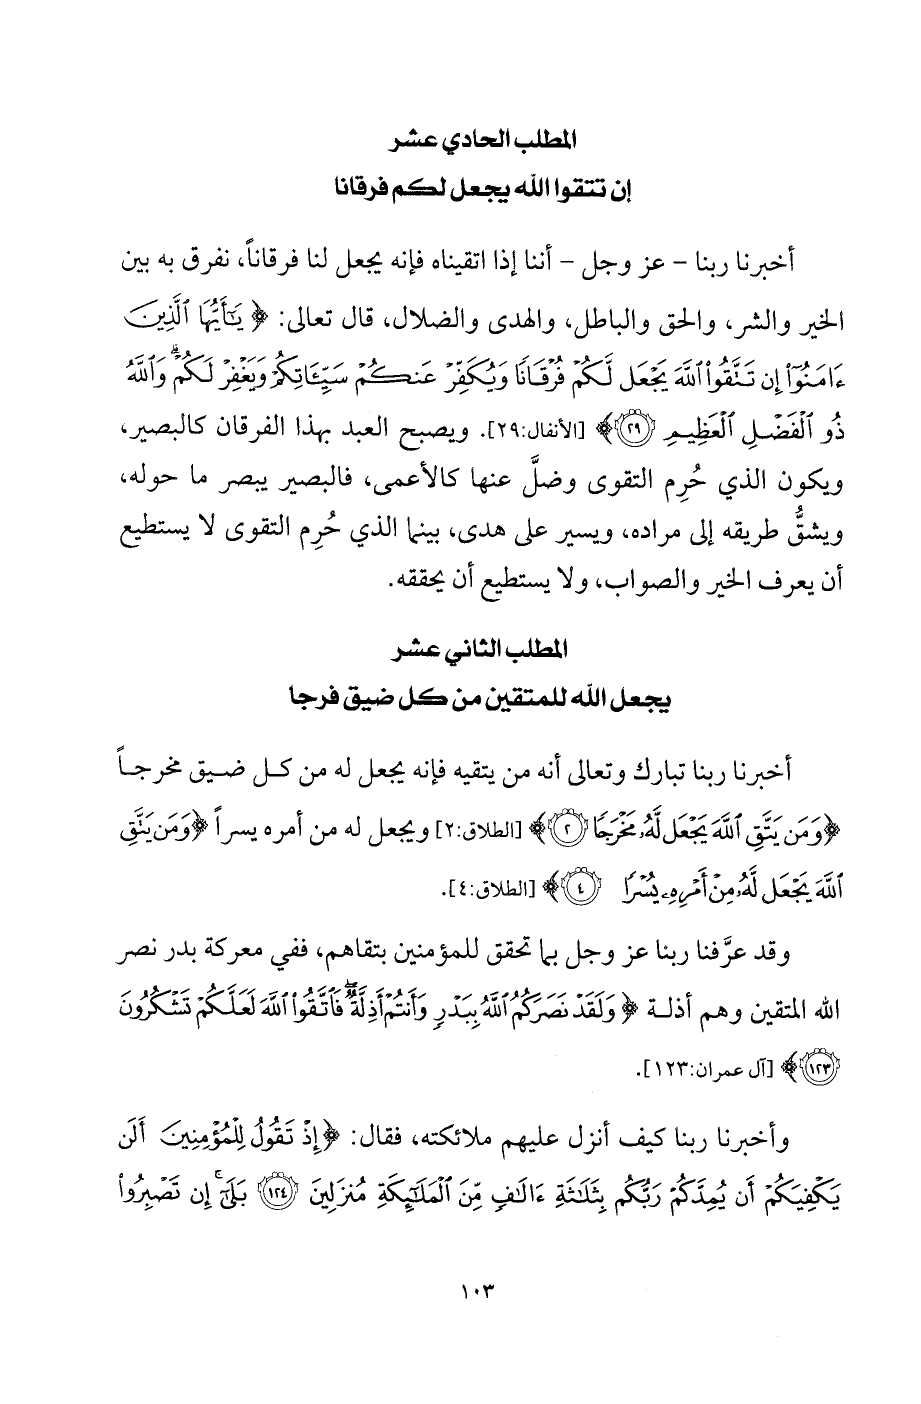 المطلب الحادي عشر
إن تتقوا الله يجعل لكم فرقانا
أخبرنا ربنا – عز وجل – أننا إذا اتقيناه فإنه يجعل لنا فرقاناً، نفرق به بين
الخير والشر، والحق والباطل، والهدى والضلال، قال تعالى: ﴿يَٰٓأَيُّهَا ٱلَّذِينَ
ءَامَنُوٓاْ إِن تَتَّقُواْ ٱللَّهَ يَجۡعَل لَّكُمۡ فُرۡقَانٗا وَيُكَفِّرۡ عَنكُمۡ سَيِّـَٔاتِكُمۡ وَيَغۡفِرۡ لَكُمۡۗ وَٱللَّهُ
ذُو ٱلۡفَضۡلِ ٱلۡعَظِيمِ ٢٩﴾ [الأنفال:٢٩]. ويصبح العبد بهذا الفرقان كالبصير،
ويكون الذي حُرِم التقوى وضلَّ عنها كالأعمى، فالبصير يبصر ما حوله،
ويشقُّ طريقه إلى مراده، ويسير على هدى، بينما الذي حُرِم التقوى لا يستطيع
أن يعرف الخير والصواب، ولا يستطيع أن يحققه.
المطلب الثاني عشر
يجعل الله للمتقين من كل ضيق فرجا
أخبرنا ربنا تبارك وتعالى أنه من يتقيه فإنه يجعل له من كل ضيق مخرجاً
﴿وَمَن يَتَّقِ ٱللَّهَ يَجۡعَل لَّهُۥ مَخۡرَجٗا ٢﴾ [الطلاق:٢] ويجعل له من أمره يسراً ﴿وَمَن يَتَّقِ
ٱللَّهَ يَجۡعَل لَّهُۥ مِنۡ أَمۡرِهِۦ يُسۡرٗا ٤﴾ [الطلاق:٤].
وقد عرَّفنا ربنا عز وجل بما تحقق للمؤمنين بتقاهم، ففي معركة بدر نصر
الله المتقين وهم أذلة ﴿وَلَقَدۡ نَصَرَكُمُ ٱللَّهُ بِبَدۡرٖ وَأَنتُمۡ أَذِلَّةٞۖ فَٱتَّقُواْ ٱللَّهَ لَعَلَّكُمۡ تَشۡكُرُونَ
١٢٣﴾ [آل عمران:١٢٣].
وأخبرنا ربنا كيف أنزل عليهم ملائكته، فقال: ﴿إِذۡ تَقُولُ لِلۡمُؤۡمِنِينَ أَلَن
يَكۡفِيَكُمۡ أَن يُمِدَّكُمۡ رَبُّكُم بِثَلَٰثَةِ ءَالَٰفٖ مِّنَ ٱلۡمَلَٰٓئِكَةِ مُنزَلِينَ ١٢٤ بَلَىٰٓۚ إِن تَصۡبِرُواْ
١٠٣